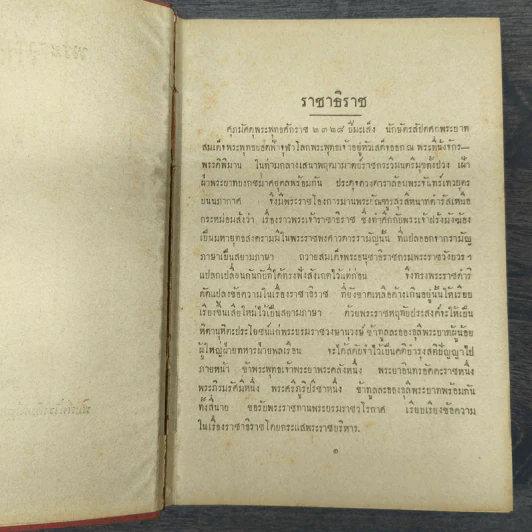 ราชาธิราช
ศุภมัศดุพระพุทธศักราช ๒๓๒๘ ปีมะเส็ง นักษัตรสัปตศกพระบาท
สมเด็จพระพุทธยอดฟ้าจุฬาโลกพระพุทธเจ้าอยู่หัวเสด็จออก ณ พระที่นั่งจักร—
พรรดิพิมาน ในท่ามกลางเสนาพฤฒามาตย์ราชกระวีมนตรีมุขทั้งปวง เฝ้า
ฝ่าพระบาทบงกชมาศอุดลพร้อมกัน ประดุจดวงดาราล้อมพระจันทร์เทวบุตร
บนนภากาศ จึงมีพระราชโองการมานพระบัณฑูรสุรสิหนาทดำรัสเหนือ
กระหม่อมสั่งว่า เรื่องราวพระเจ้าราชาธิราช ซึ่งทำศึกกับพระเจ้าฝรั่งมังฆ้อง
เป็นมหายุทธสงครามมีในพระราชพงศาวดารรามัญนั้น ที่แปลออกจากรามัญ
ภาษาเป็นสยามภาษา ถวายสมเด็จพระอนุชาธิราชกรมพระราชวังบวร ฯ
แปลกเปลี่ยนกันกับที่ได้ทรงฟังสังเกตไว้แต่ก่อน จึงทรงพระราชดำริ
ดัดแปลงข้อความในเรื่องราชาธิราช ที่ยังขาดเหลือค้างเกินอยู่นั้นให้เรียบ
เรียงขึ้นเสียใหม่ไว้เป็นสยามภาษา ด้วยพระราชหฤทัยประสงค์จะให้เป็น
หิตานุหิตะประโยชน์แก่พระบรมราชวงษานุวงษ์ ข้าทูลละอองธุลีพระบาทผู้น้อย
ผู้ใหญ่ฝ่ายทหารฝ่ายพลเรือน จะได้สดับจำไว้เป็นคติบำรุงสติปัญญาไป
ภายหน้า ข้าพระพุทธเจ้าพระยาพระคลังหนึ่ง พระยาอินทรอัคคะราชหนึ่ง
พระภิรมรัศมีหนึ่ง พระศรีภูริปรีชาหนึ่ง ข้าทูลละอองธุลีพระบาทพร้อมกัน
ทั้งสี่นาย ขอรับพระราชทานพระบรมราชวโรกาศ เรียบเรียงข้อความ
ในเรื่องราชาธิราชโดยกระแสพระราชบริหาร.
๑